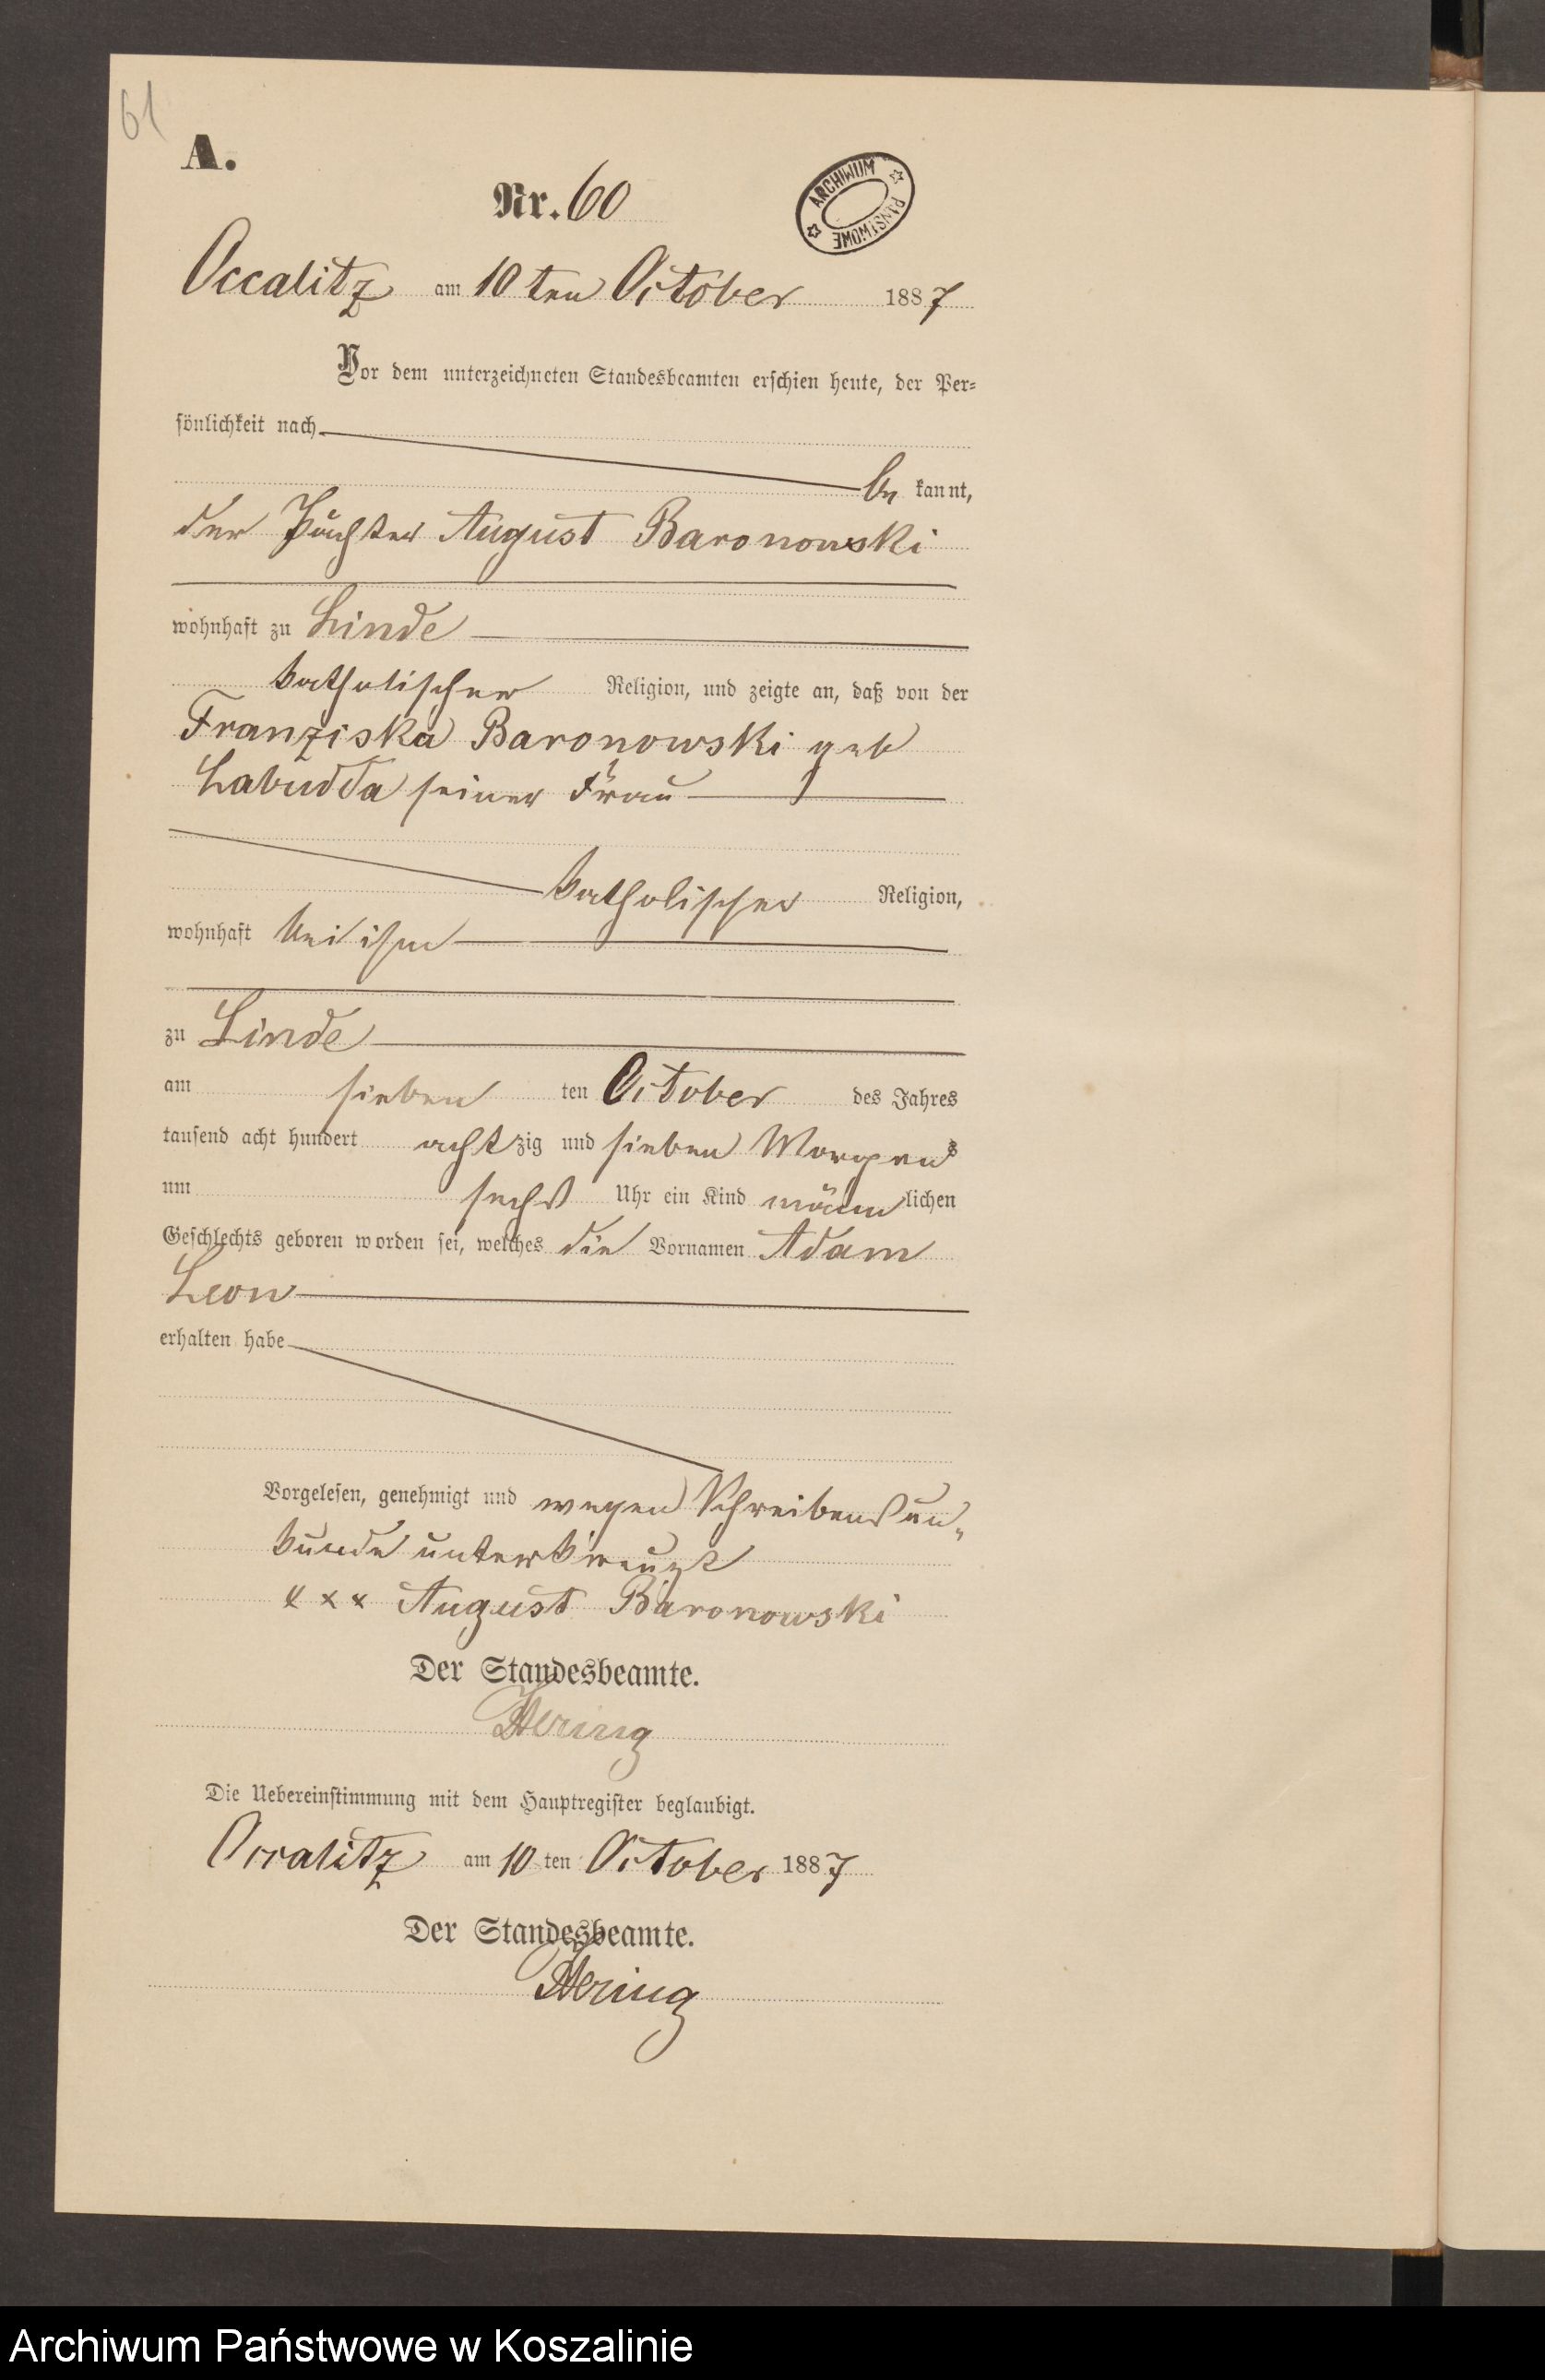 61
A.
Nr. 60
ARCHIWUM PAŃSTWOWE
Occalitz am 10 ten October 1887
Vor dem unterzeichneten Standesbeamten erschien heute, der Per=
sönlichkeit nach
be kannt,
der Pächter August Baronowski
wohnhaft zu Linde
katholischer Religion, und zeigte an, daß von der
Franziska Baronowski geb
Labudda seiner Frau
katholischer Religion,
wohnhaft bei ihm
zu Linde
am sieben ten October des Jahres
tausend acht hundert acht zig und sieben Morgens
um sechs Uhr ein Kind männ lichen
Geschlechts geboren worden sei, welches die Vornamen Adam
Leon
erhalten habe
Vorgelesen, genehmigt und wegen Schreibensun-
kunde unterkreuzt
x x x August Baronowski
Der Standesbeamte.
Hering
Die Uebereinstimmung mit dem Hauptregister beglaubigt.
Occalitz am 10 ten October 1887
Der Standesbeamte.
Hering
Archiwum Państwowe w Koszalinie